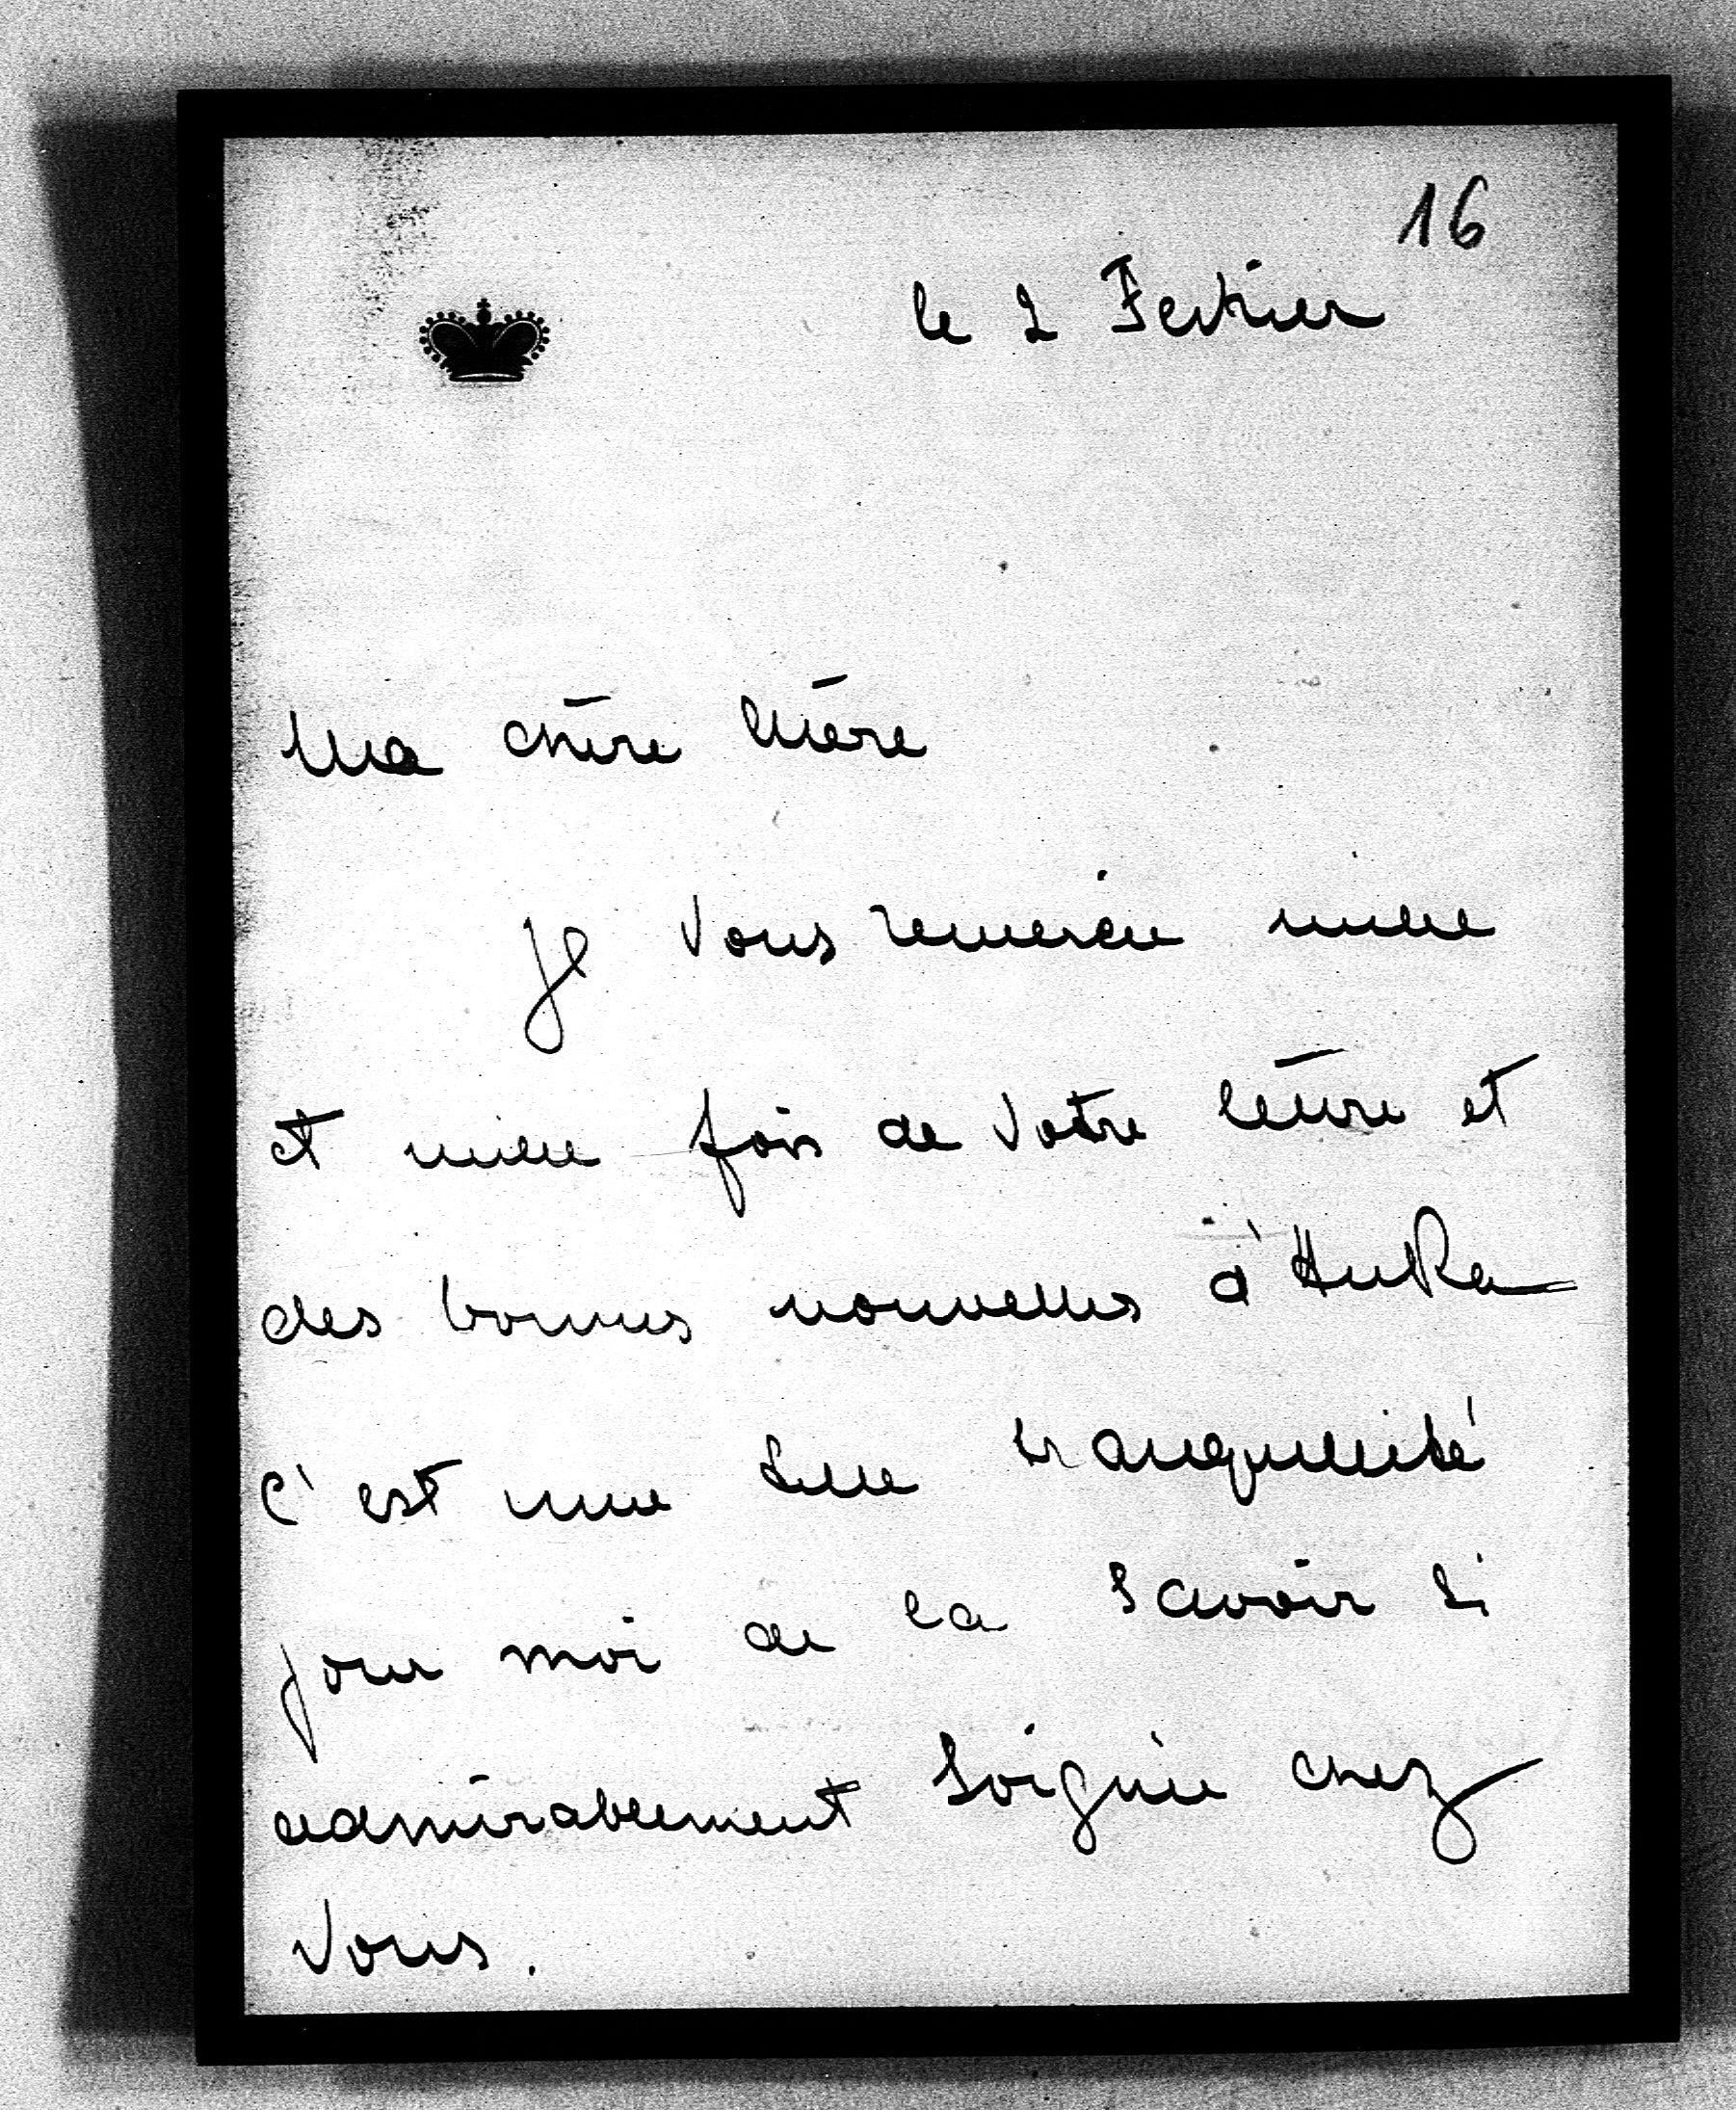 16
le 2 Fevrier
Ma chère Mère
Je vous remercie mille
et mille fois de votre lettre et
des bonnes nouvelles
C'est une telle tranquillité
pour moi de la savoir si
admirablement soignée chez
vous.